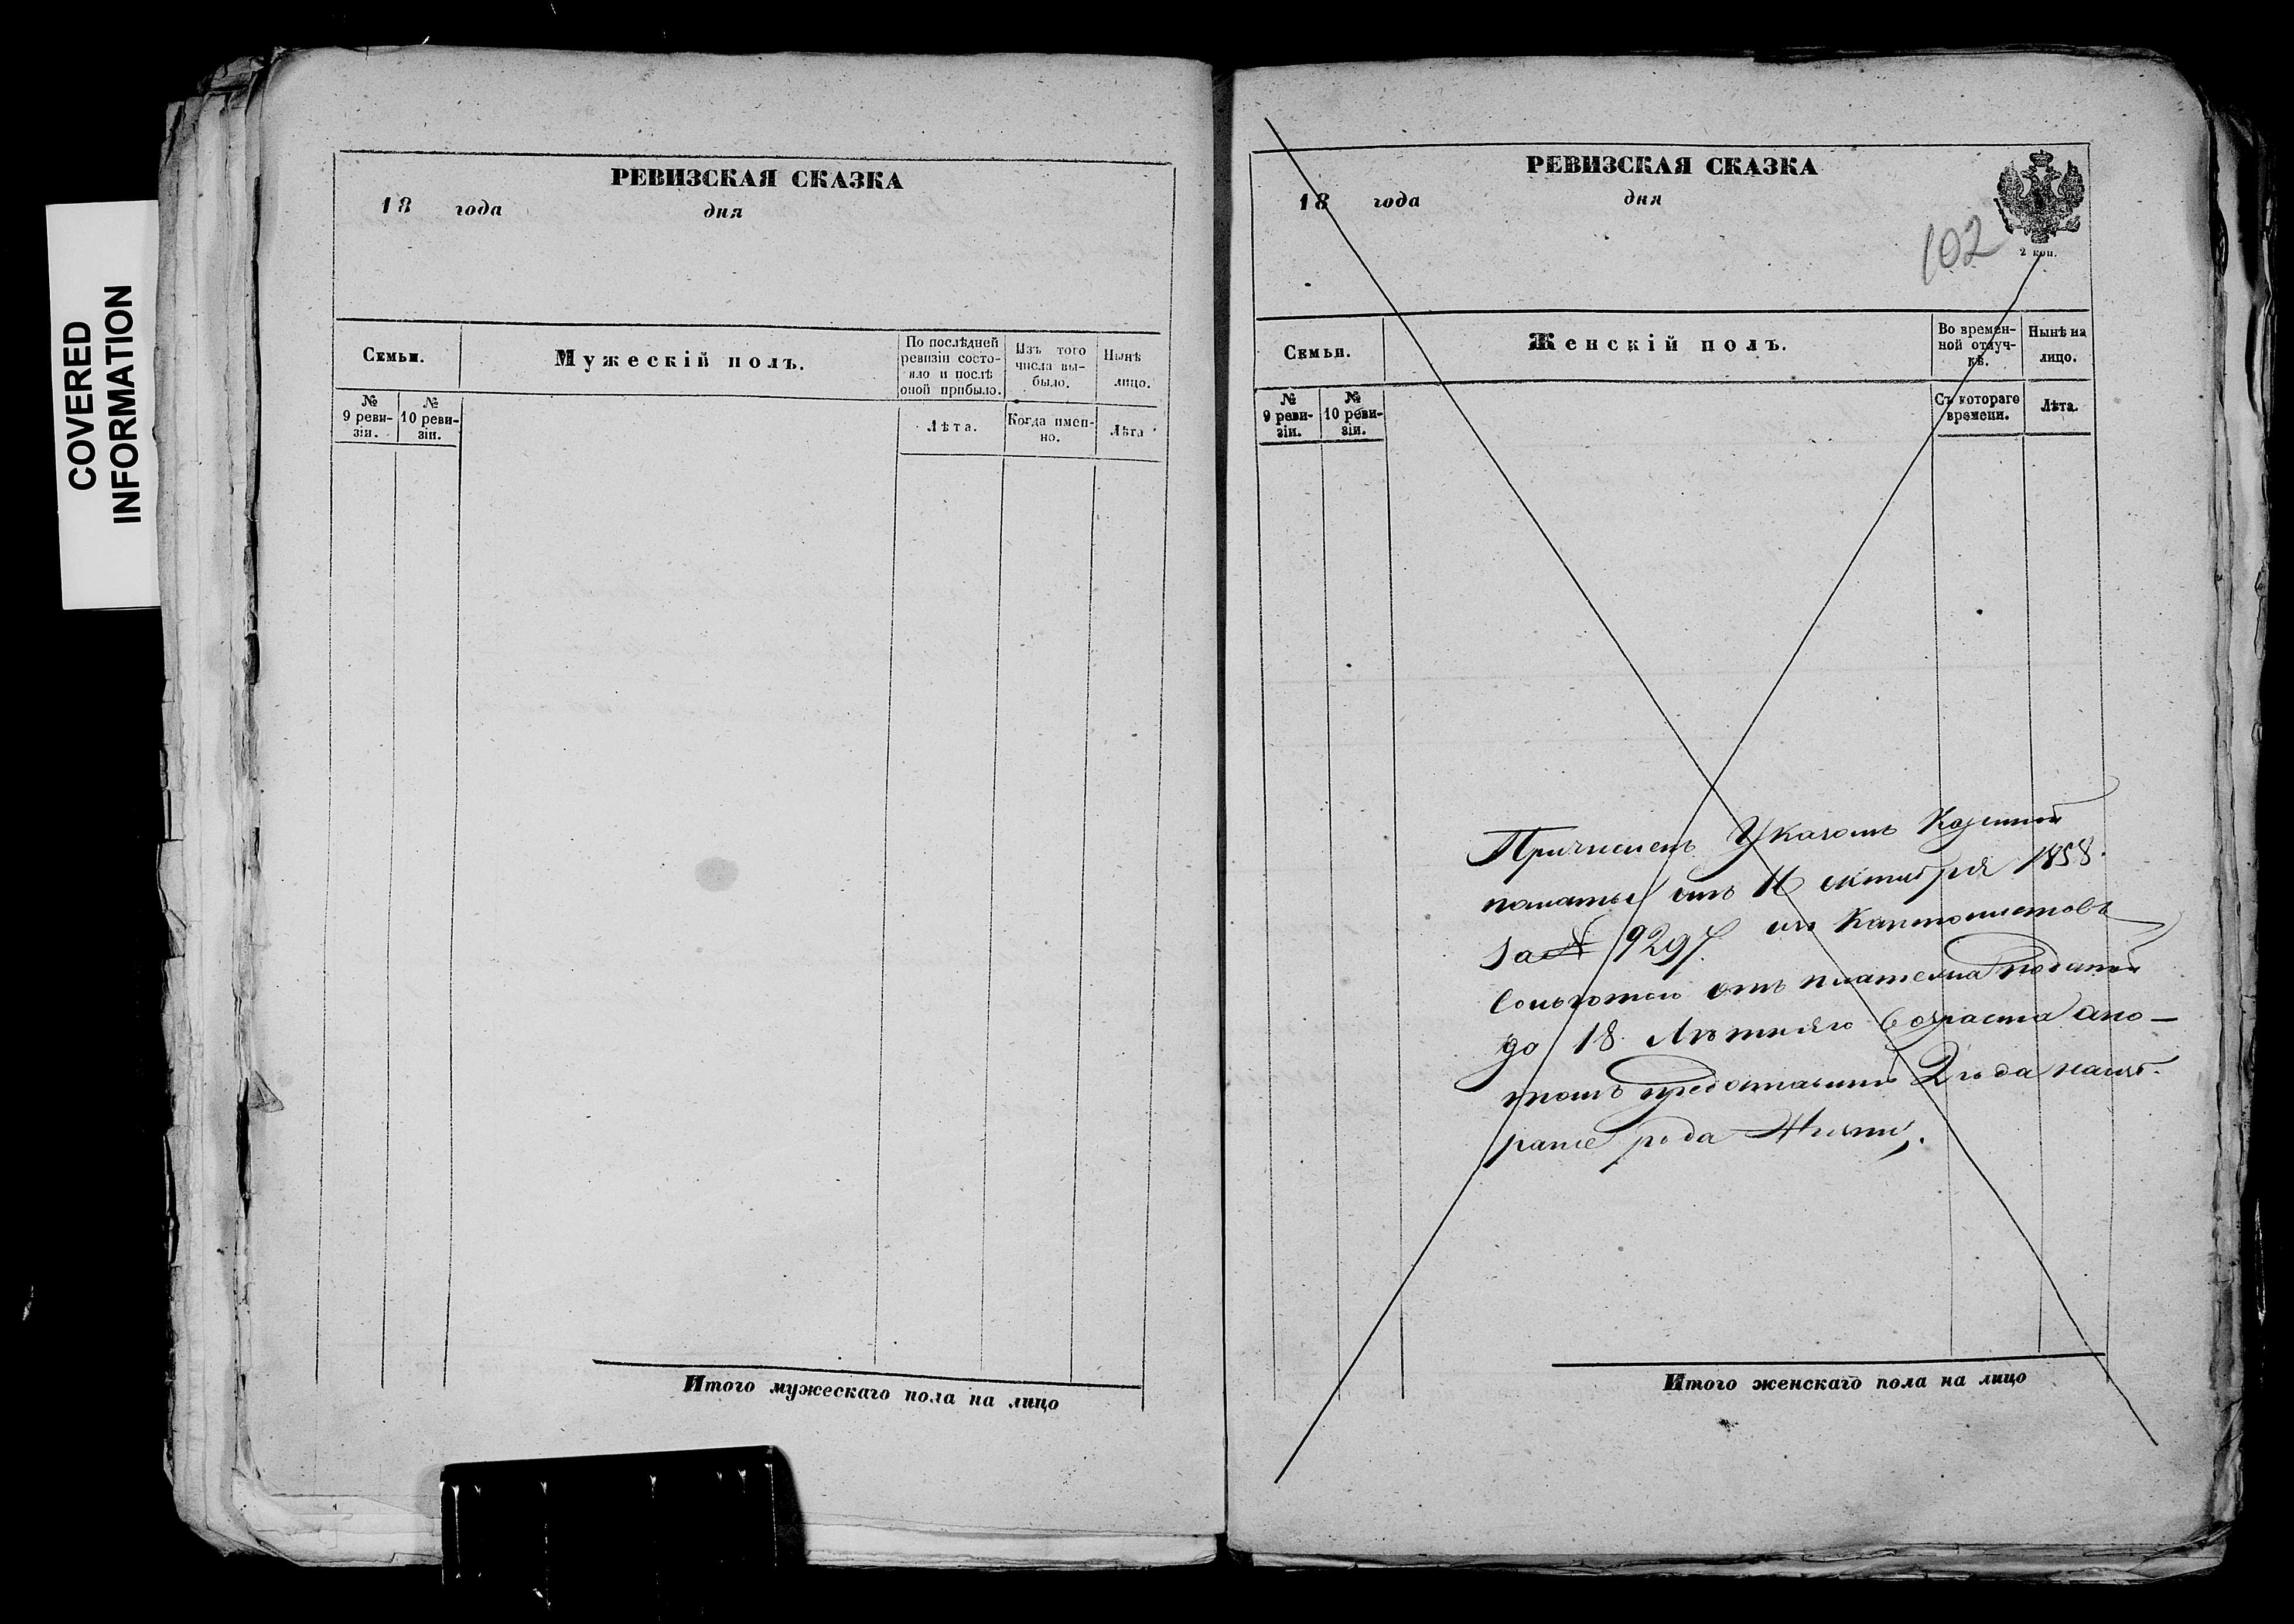 COVERED
INFORMATION
РЕВИЗСКАЯ СКАЗКА
18 года дня
Семьи.
Мужескій полъ.
По послѣдней
ревизіи состо-
яло и послѣ
оной прибыло.
Изъ того
числа вы-
было.
Нынѣ
лицо.
№
9 реви-
зіи.
№
10 реви-
зіи.
Лѣта.
Когда имен-
но.
Лѣта
Итого мужескаго пола на лицо
РЕВИЗСКАЯ СКАЗКА
18 года дня
2 коп.
102
Семьи.
Женскій полъ.
Во времен-
ной отлуч-
кѣ.
Нынѣ на
лицо.
№
9 реви-
зіи.
№
10 реви-
зіи.
Съ котораго
времени.
Лѣта.
Причисленъ Указомъ Казенной
палаты отъ 11 октября 1858.
за № 9297. изъ Кантонистовъ
сольготою отъ платежа податей
до 18 Лѣтняго возраста апо-
томъ предоставить 2 года наизб-
раніе рода жизни.
Итого женскаго пола на лицо